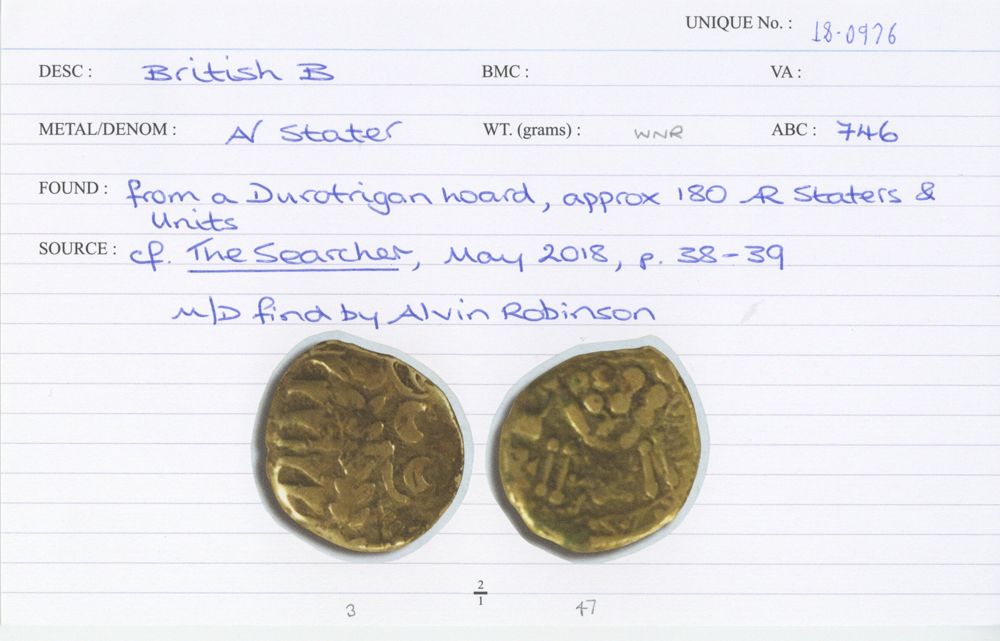 UNIQUE No. : 18-0976
DESC : British B BMC : VA :
METAL/DENOM : AV Stater WT. (grams) : WNR ABC : 746
FOUND : from a Durotrigan hoard, approx 180 AR Staters &
Units
SOURCE : cf. The Searcher, May 2018, p. 38-39
M/D find by Alvin Robinson
2
1
3 47